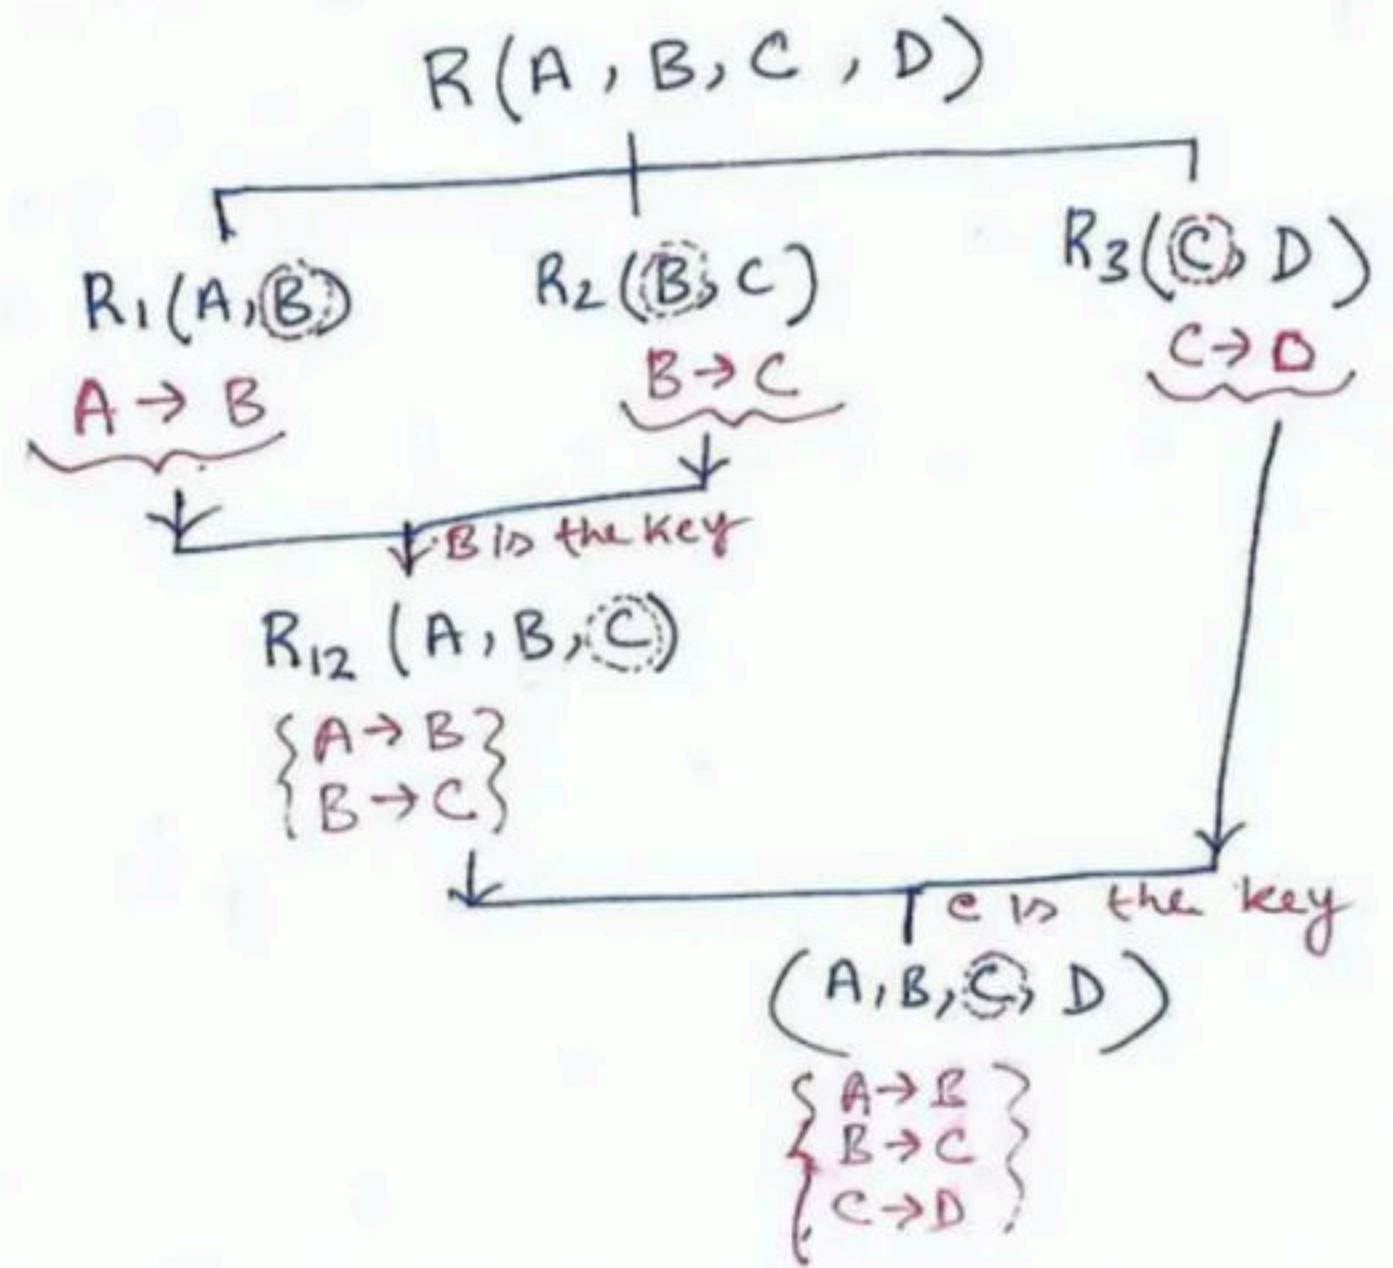 R(A, B, C, D)
R1(A, B) R2(B, C) R3(C, D)
A → B B → C C → D
B is the key
R12 (A, B, C)
{A → B}
{B → C}
C is the key
(A, B, C, D)
{A → B}
{B → C}
{C → D}